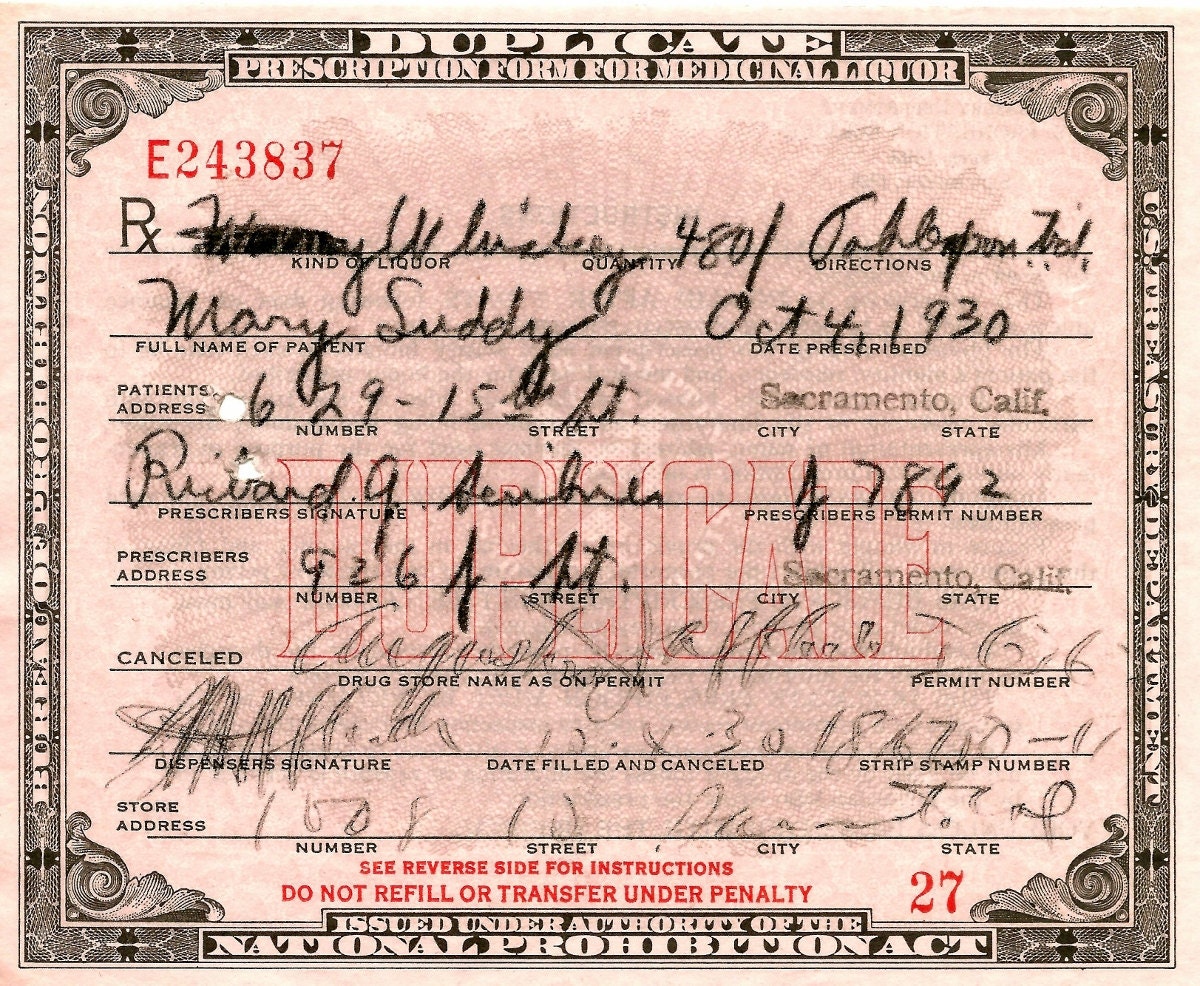 DUPLICATE
PRESCRIPTION FORM FOR MEDICINAL LIQUOR
E243837
Rx Whiskey 480 Tablespoon tid.
KIND OF LIQUOR QUANTITY DIRECTIONS
Mary Suddy Oct 4, 1930
FULL NAME OF PATIENT DATE PRESCRIBED
PATIENTS ADDRESS 629-15th St. Sacramento, Calif.
NUMBER STREET CITY STATE
Richard G. 7892
PRESCRIBERS SIGNATURE PRESCRIBERS PERMIT NUMBER
DUPLICATE
PRESCRIBERS ADDRESS 926 J St. Sacramento, Calif.
NUMBER STREET CITY STATE
CANCELED
DRUG STORE NAME AS ON PERMIT PERMIT NUMBER
10-4-30
DISPENSERS SIGNATURE DATE FILLED AND CANCELED STRIP STAMP NUMBER
STORE ADDRESS 1008 10
NUMBER STREET CITY STATE
SEE REVERSE SIDE FOR INSTRUCTIONS
DO NOT REFILL OR TRANSFER UNDER PENALTY
27
ISSUED UNDER AUTHORITY OF THE
NATIONAL PROHIBITION ACT